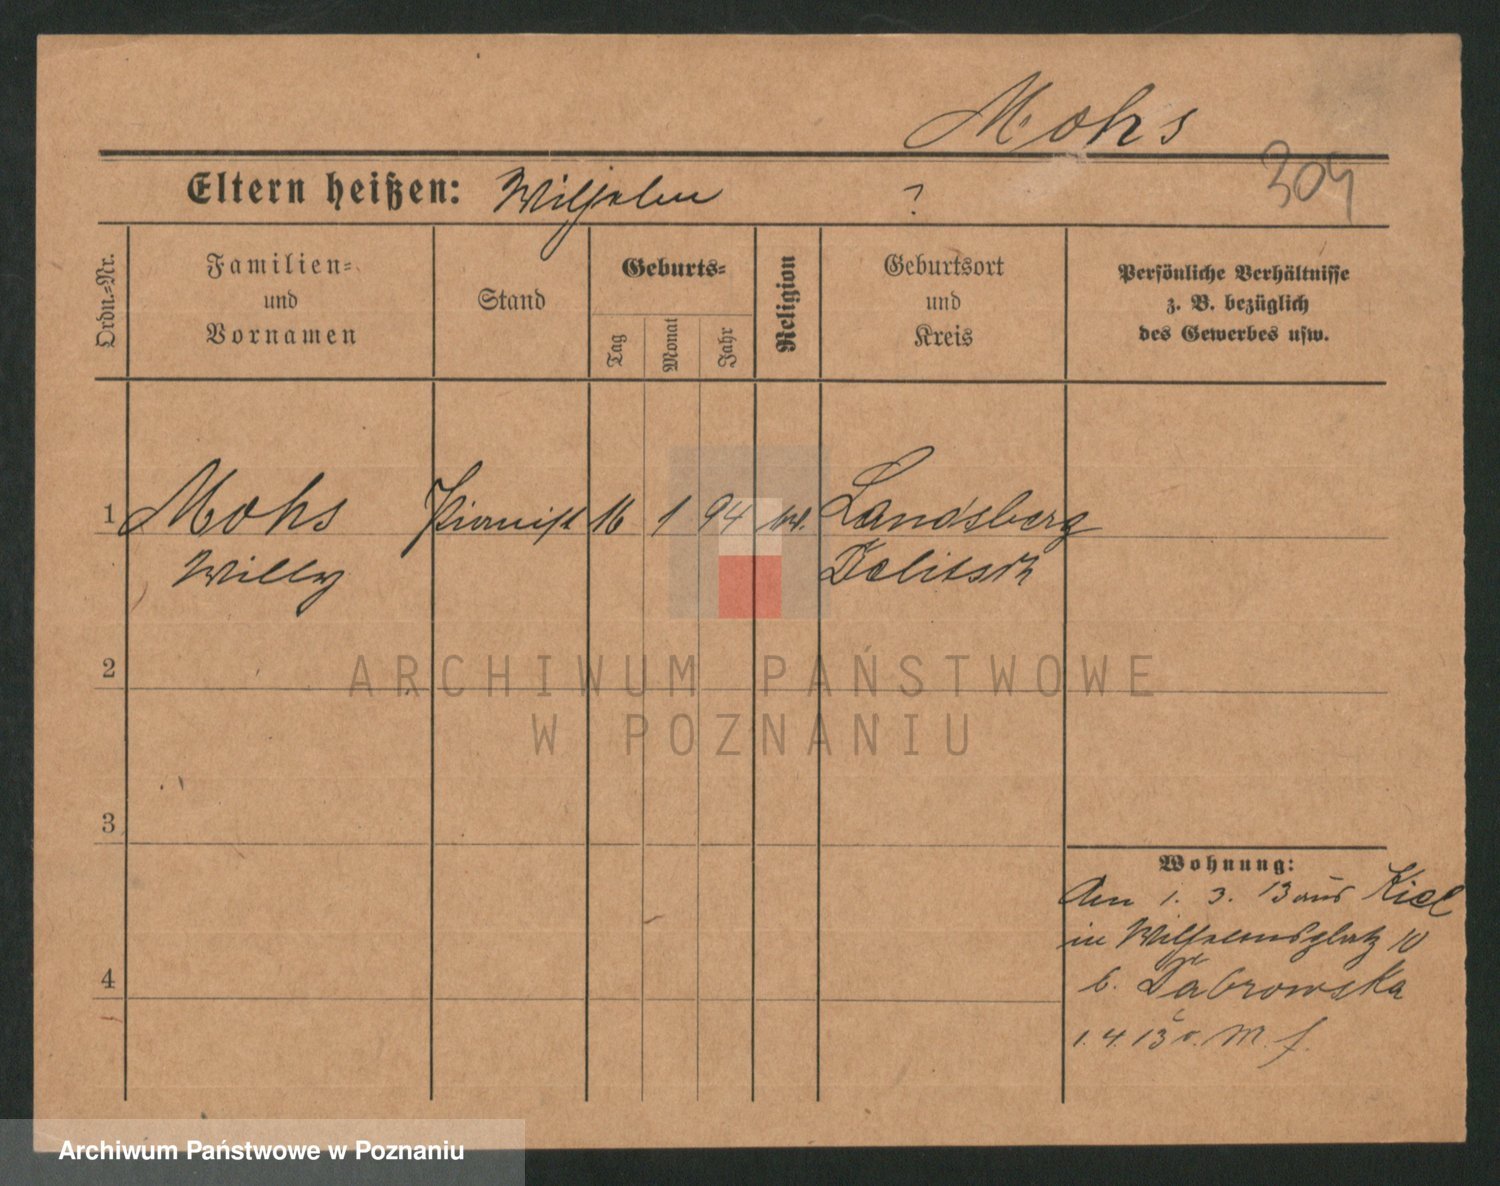 Mohs
Eltern heißen: Wilhelm ?
304
Ordn.-Nr.
Familien-
und
Vornamen
Stand
Geburts-
Tag
Monat
Jahr
Religion
Geburtsort
und
Kreis
Persönliche Verhältnisse
z. B. bezüglich
des Gewerbes usw.
1 Mohs Pianist 16 1 94 Landsberg
Willy Delitsch
2
ARCHIWUM PAŃSTWOWE
W POZNANIU
3
Wohnung:
den 1. 3. 13 aus Kiel
in Wilhelmsplatz 10
b. Dąbrowska
4
1. 4. 13 v. M. f.
Archiwum Państwowe w Poznaniu